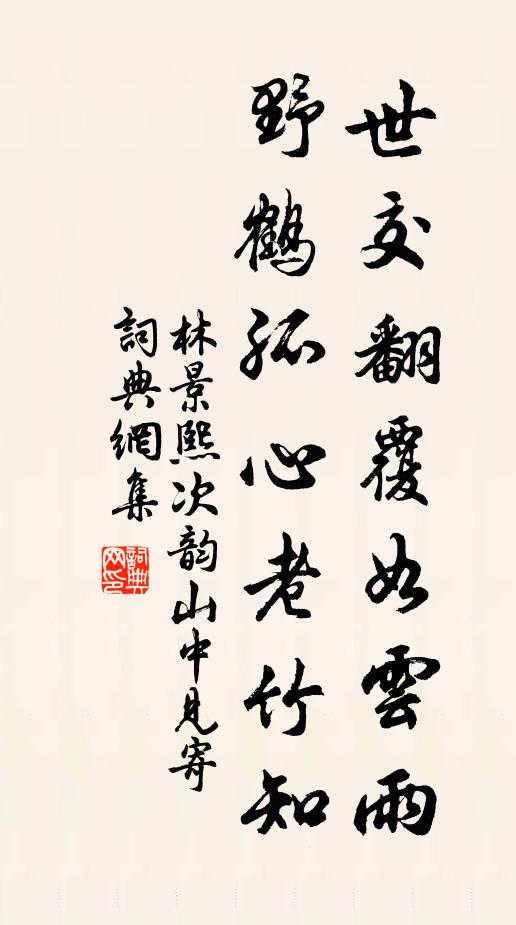 世交翻覆如雲雨
野鶴孤心老竹知
林景熙次韵山中見寄
詞典網集
詞典
网印